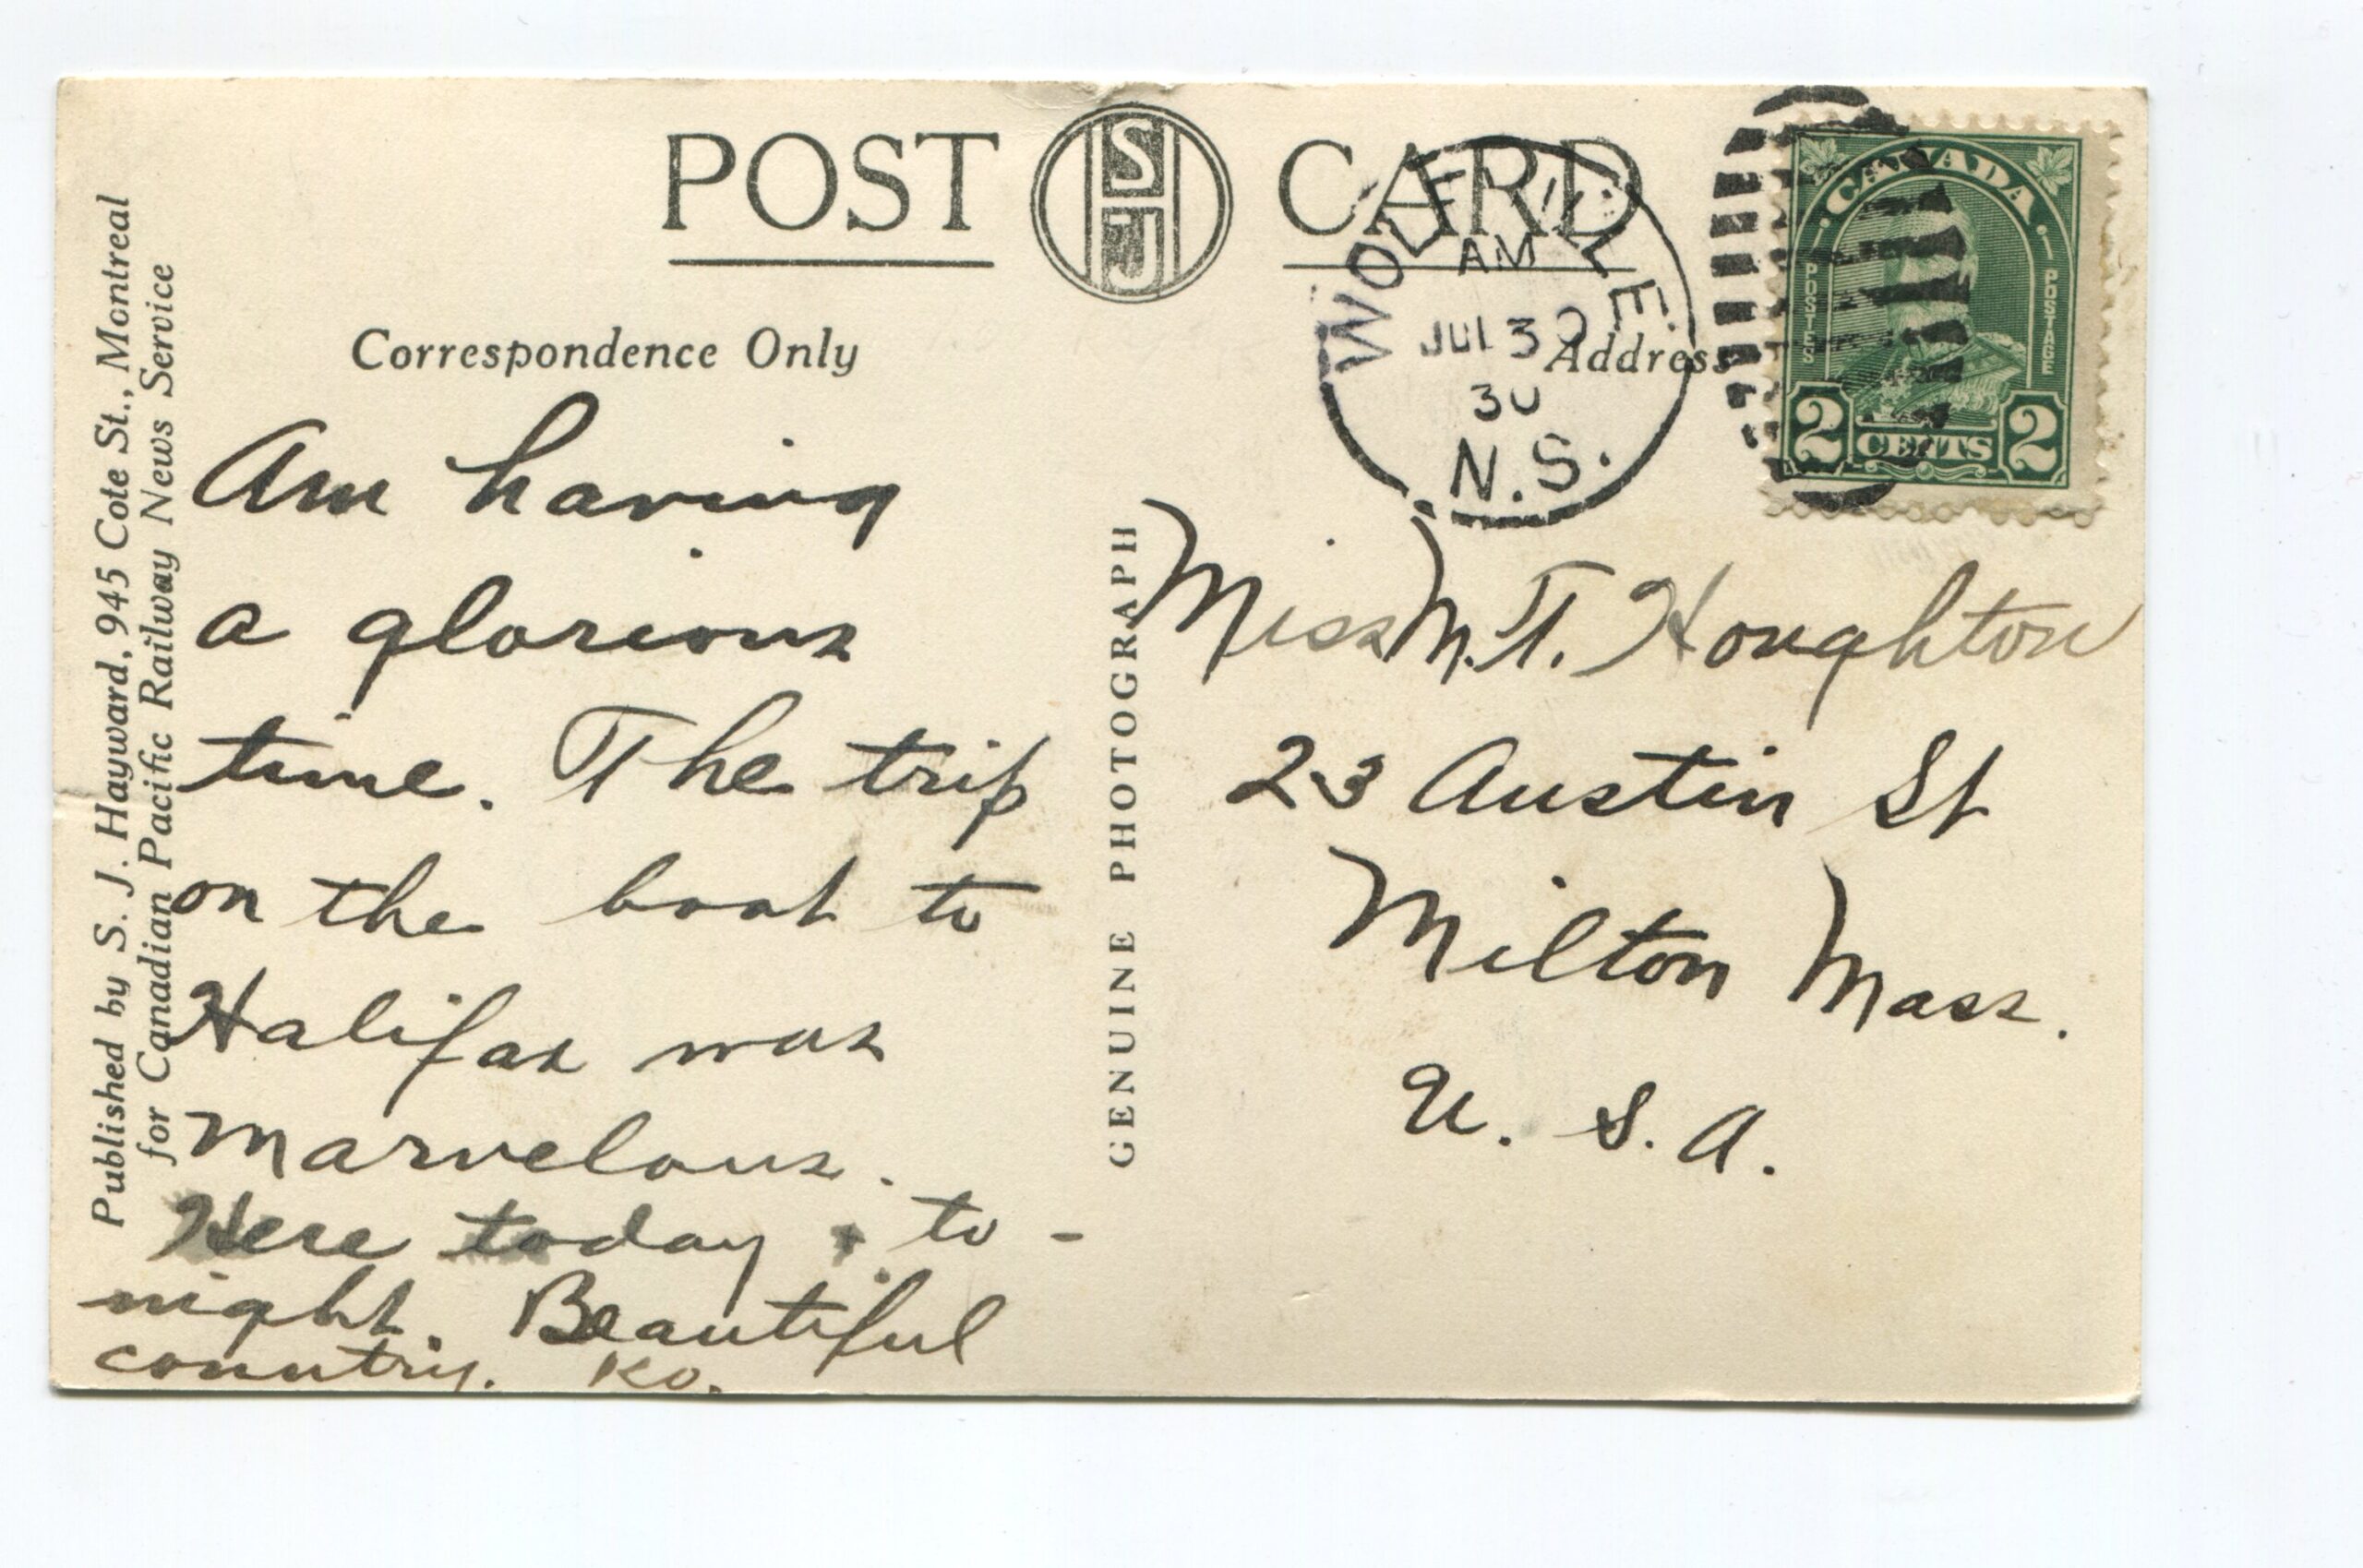 POST SJH CARD
Correspondence Only
Address
Published by S. J. Hayward, 945 Cote St., Montreal
for Canadian Pacific Railway News Service
GENUINE PHOTOGRAPH
WOLFVILLE
AM
JUL 30
30
N.S.
CANADA
POSTES
POSTAGE
2 CENTS 2
Am having
a glorious
time. The trip
on the boat to
Halifax was
marvelous.
Here today + to-
night. Beautiful
country. KO.
Miss M. T. Houghton
23 Austin St
Milton Mass.
U. S. A.